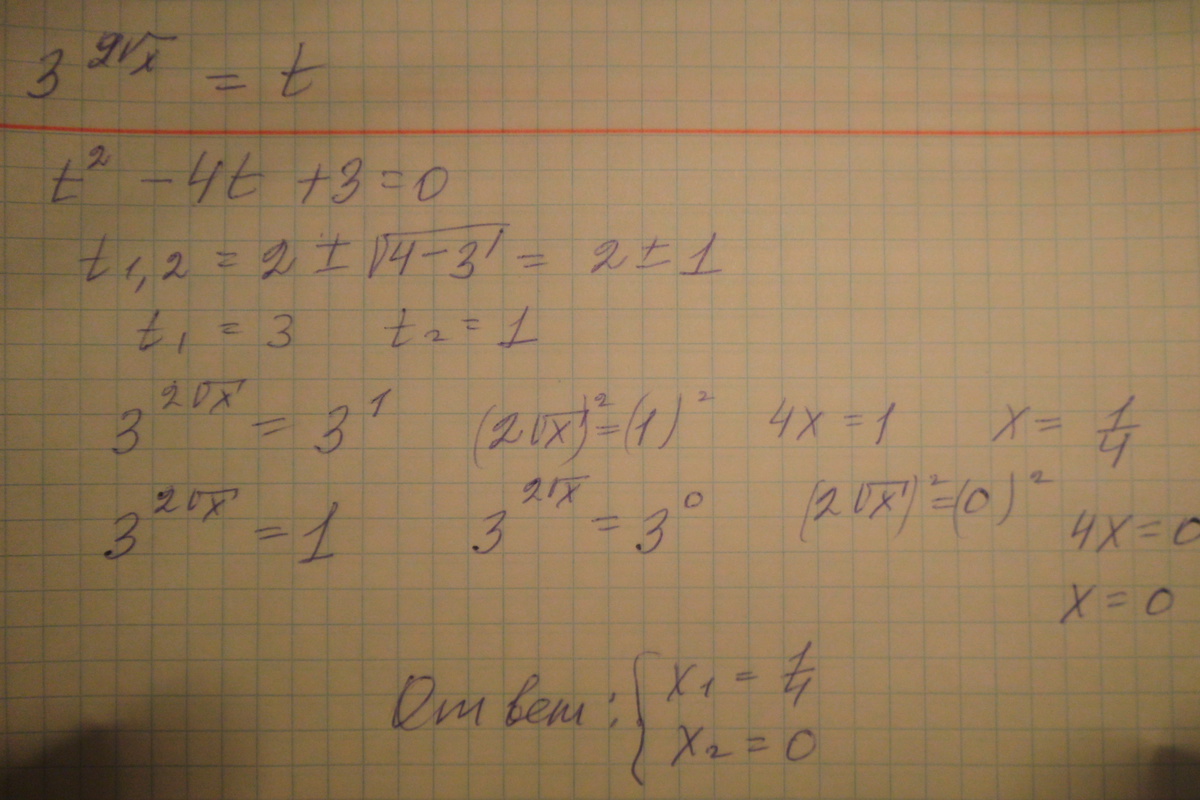 3^{2√x} = t
t² - 4t + 3 = 0
t₁,₂ = 2 ± √(4-3) = 2 ± 1
t₁ = 3 t₂ = 1
3^{2√x} = 3¹ (2√x)² = (1)² 4x = 1 x = 1/4
3^{2√x} = 1 3^{2√x} = 3⁰ (2√x)² = (0)² 4x = 0
x = 0
Ответ: { x₁ = 1/4
x₂ = 0